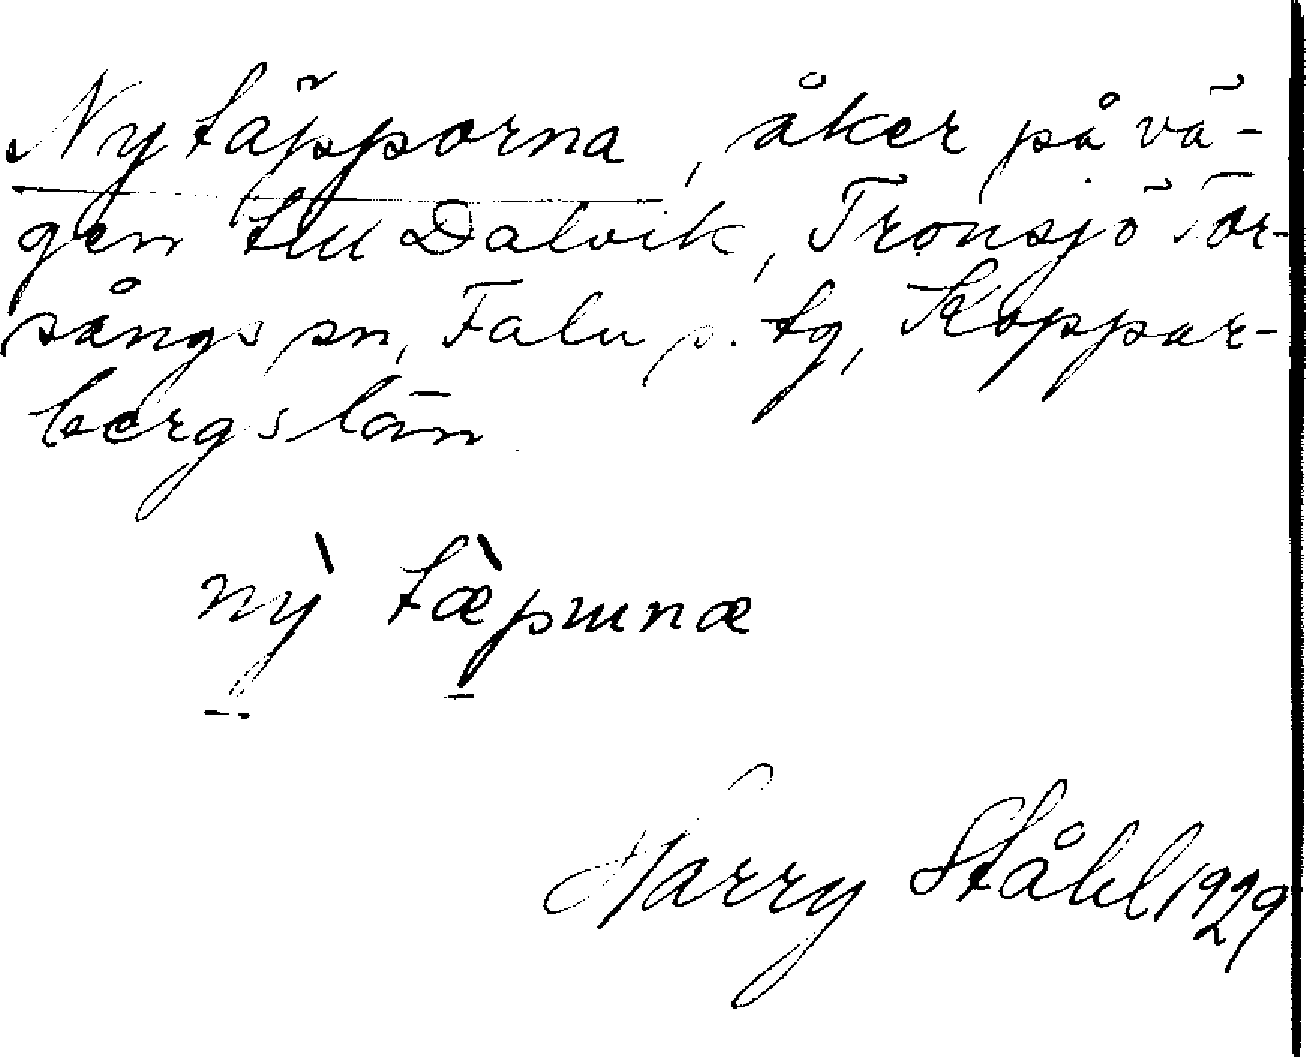 Nytäpporna, åker på vä-
gen till Dalvik, Tronsjö Tor-
sångs sn, Falu s. tg, Koppar-
bergs län
nỳ tæ̀pmnæ
Harry Ståhl 1929